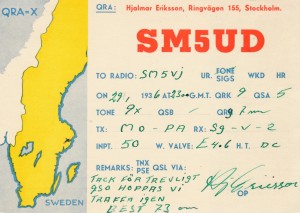 QRA-X
QRA: Hjalmar Eriksson, Ringvägen 155, Stockholm.
SM5UD
TO RADIO: SM5VJ UR. FONE SIGS WKD HR
ON 29/, 1936 AT 2300 G.M.T. QRK 9 QSA 5
TONE 9x QSB / QRG 7 mc
TX: MO-PA RX: S9-V-2
INPT. 50 W. VALVE E406 H.T. DC
REMARKS: TNX PSE QSL VIA:
TACK FÖR TREVLIGT
QSO HOPPAS VI
TRÄFFA IGEN
BEST 73 om
OP
SWEDEN